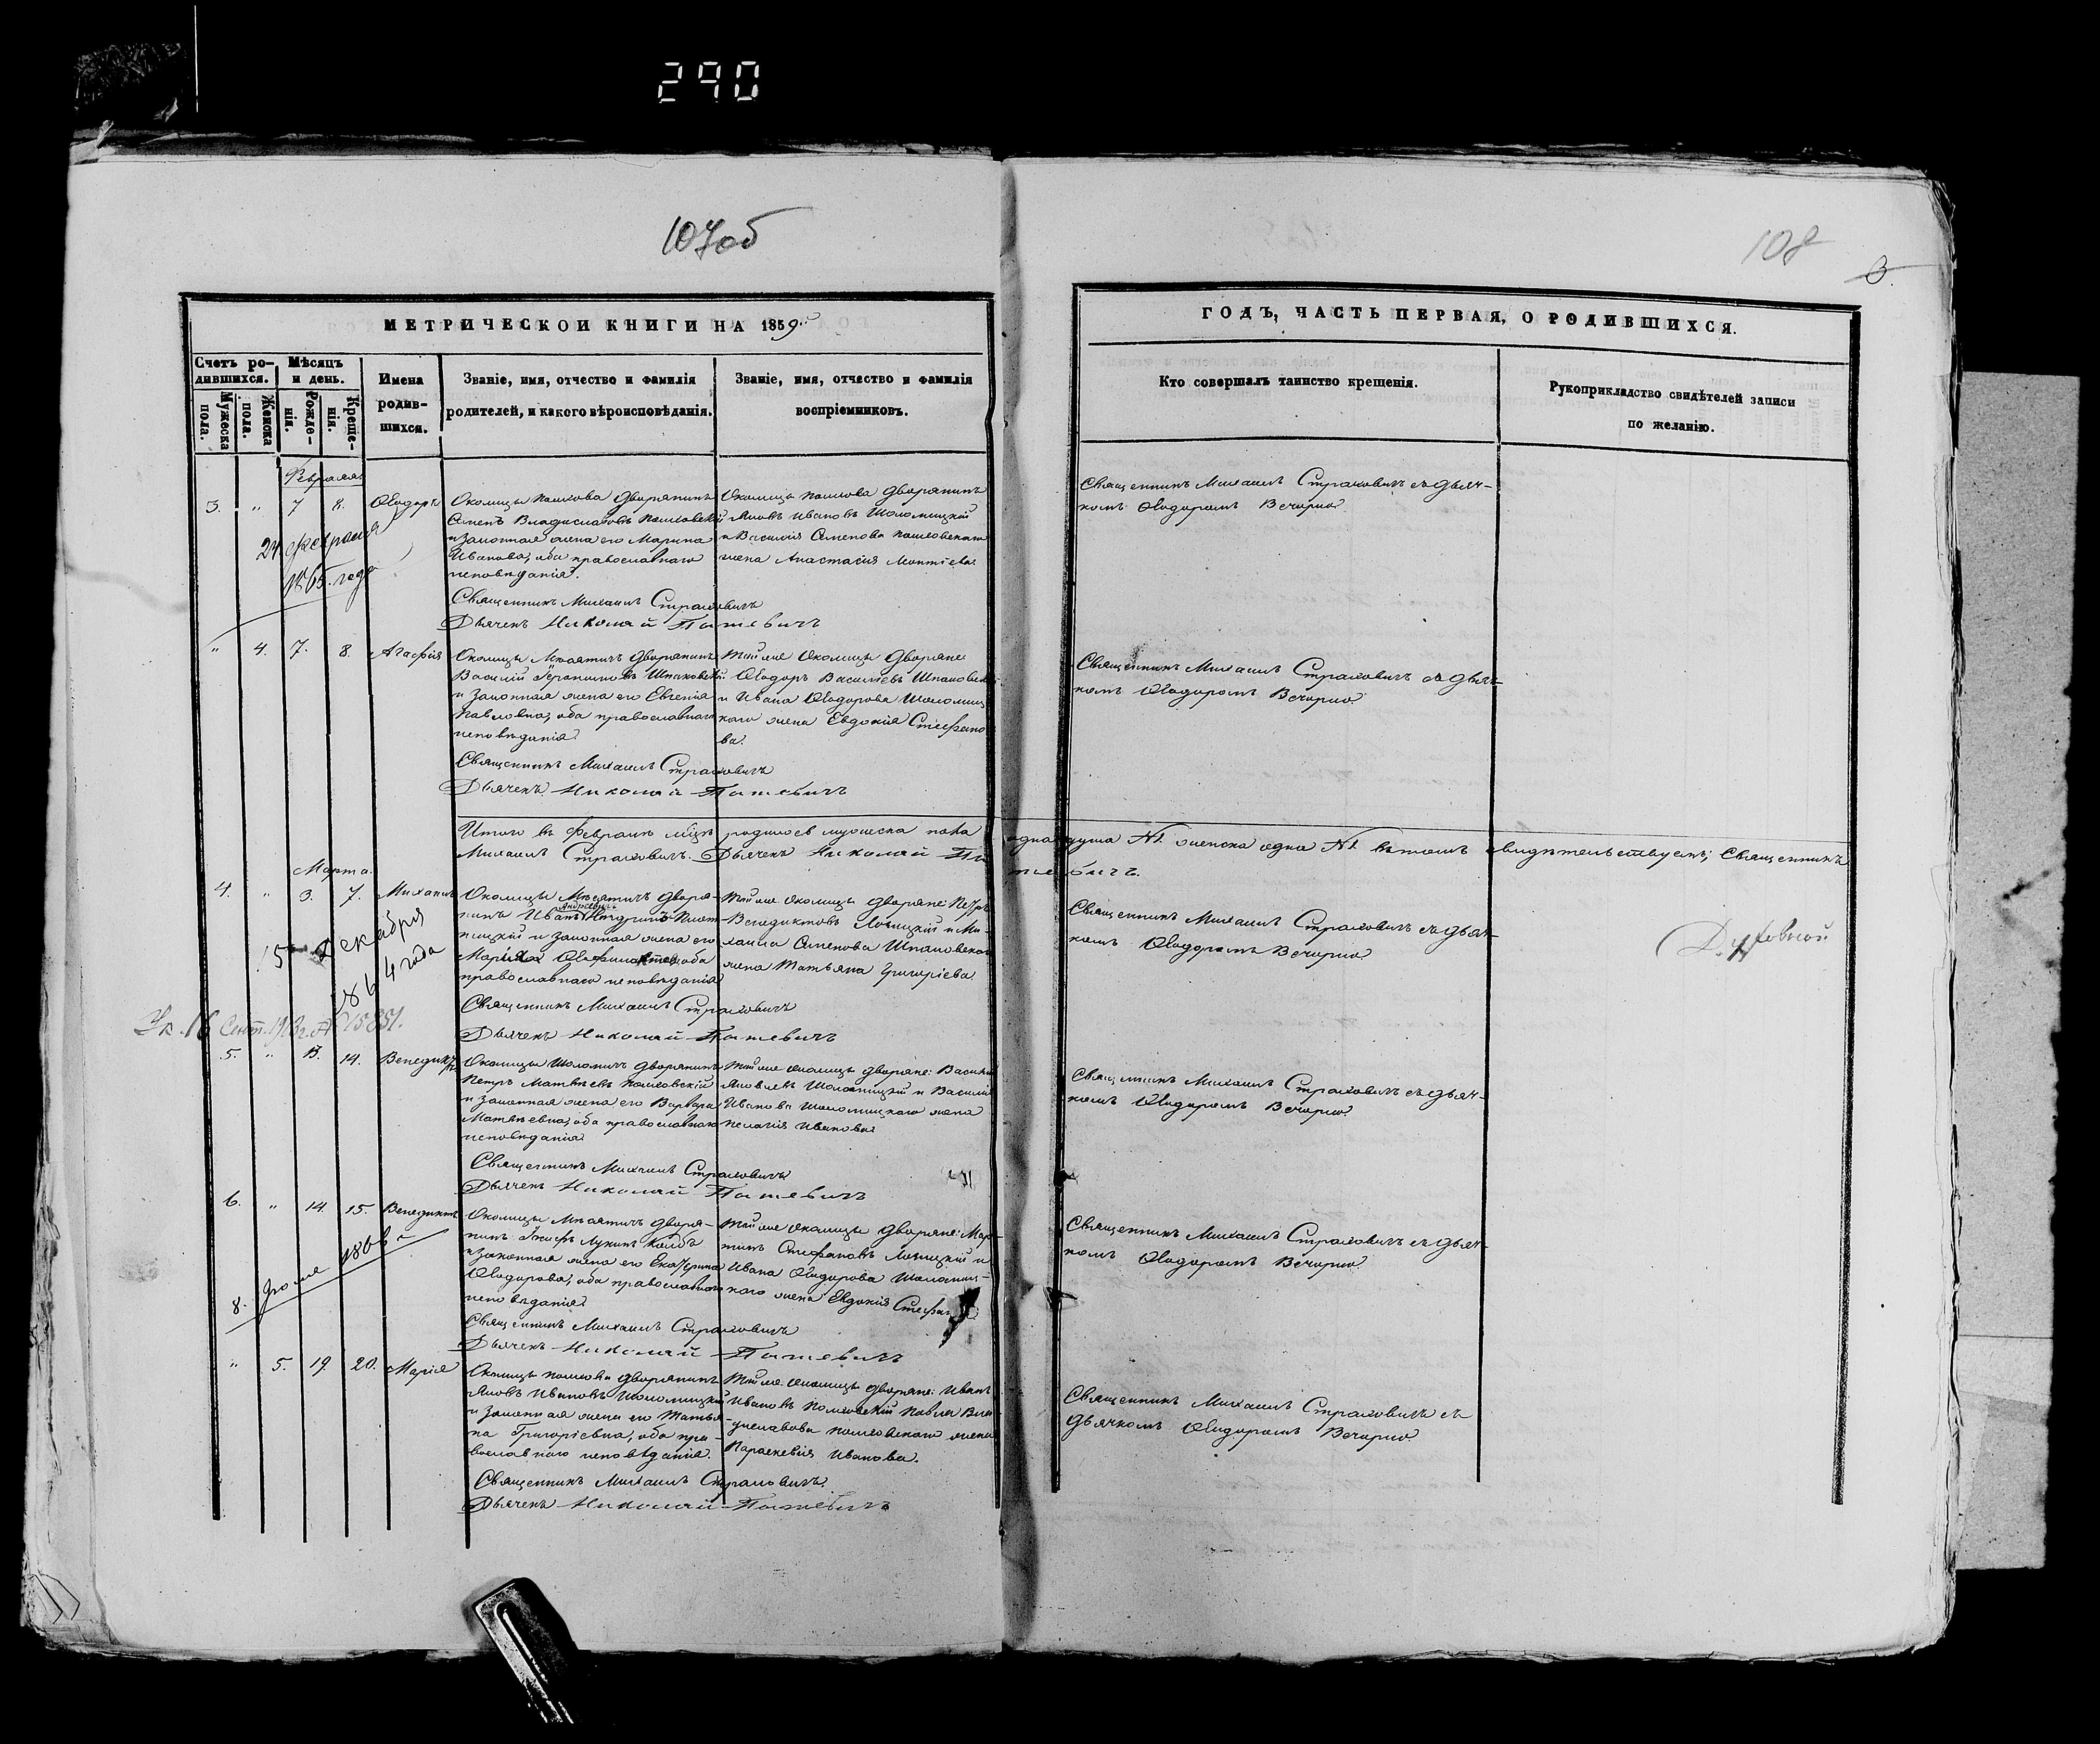 290
107об
108
МЕТРИЧЕСКОЙ КНИГИ НА 1859й
Счетъ ро-
дившихся.
Мѣсяцъ
и день.
Мужеска
пола.
Женска
пола.
Рожде-
нія.
Креще-
нія.
Имена
родив-
шихся.
Званіе, имя, отчество и фамилія
родителей, и какого вѣроисповѣданія.
Званіе, имя, отчество и фамилія
воспріемниковъ.
Февраля
3. " 7 8. Ѳеодоръ
Околицы Пашкова дворянинъ
Семенъ Владиславовъ Пашковскій
и законная жена его Марина
Иванова, оба православнаго
исповѣданія.
Околицы Пашкова дворянинъ
Яковъ Ивановъ Шоломицкій
и Василія Семенова Пашковскаго
жена Анастасія
24 февраля
1865 года
Священникъ Михаилъ Страховичъ
Дьячекъ Николай
" 4. 7. 8. Агафія
Околицы дворянинъ
Василій Шпаковскій
и законная жена его Евгенія
Павловна, оба православнаго
исповѣданія.
Той же околицы дворяне
Ѳеодоръ Васильевъ
и Ивана Ѳеодорова Шоломиц
каго жена Евдокія Стефано
ва.
Священникъ Михаилъ Страховичъ
Дьячекъ Николай
Итого въ Февралѣ мѣсяцѣ родилось мужеска пола одна душа №1 женска одна №1 въ томъ свидѣтельствуемъ; Священникъ
Михаилъ Страховичъ. Дьячекъ Николай
Марта
4. " 3. 7. Михаилъ
Околицы дворя-
нинъ Иванъ Андреевъ
и законная жена его
Марія оба
православнаго исповѣданія
Той же околицы дворяне: Петръ
Венедиктовъ и Ми-
хаила Семенова Шпаковскаго
жена Татьяна Григоріева
15 декабря
1864 года
Священникъ Михаилъ Страховичъ
Дьячекъ Николай
Ук. 16 Сент. № 15851.
5. " 13. 14. Венедиктъ
Околицы Шоломичъ дворянинъ
Петръ Матвѣевъ Пашковскій
и законная жена его Варвара
Матвѣевна, оба православнаго
исповѣданія
Той же околицы дворяне: Василій
Яковлевъ Шоломицкій и Василія
Иванова Шоломицкаго жена
Пелагія Иванова
Священникъ Михаилъ Страховичъ
Дьячекъ Николай
6. " 14. 15. Венедиктъ
Околицы дворя-
нинъ Лукинъ
и законная жена его Екатерина
Ѳеодорова, оба православнаго
исповѣданія
Той же околицы дворяне: Мар-
тинъ Стефановъ и
Ивана Ѳеодорова Шоломиц-
каго жена Евдокія
8. 1866
Священникъ Михаилъ Страховичъ
Дьячекъ Николай
" 5. 19. 20. Марія
Околицы Пашкова дворянинъ
Яковъ Ивановъ Шоломицкій
и законная жена его Татья-
на Григоріевна, оба пра-
вославнаго исповѣданія.
Той же околицы дворяне: Иванъ
Ивановъ Пашковскій Павла Вла-
диславова Пашковскаго жена
Параскевія Иванова.
Священникъ Михаилъ Страховичъ.
Дьячекъ Николай
ГОДЪ, ЧАСТЬ ПЕРВАЯ, О РОДИВШИХСЯ.
Кто совершалъ таинство крещенія.
Рукоприкладство свидѣтелей записи
по желанію.
Священникъ Михаилъ Страховичъ съ дьяч-
комъ Ѳеодоромъ Вечорко
Священникъ Михаилъ Страховичъ съ дьяч-
комъ Ѳеодоромъ Вечорко
Священникъ Михаилъ Страховичъ съ дьяч-
комъ Ѳеодоромъ Вечорко
Священникъ Михаилъ Страховичъ съ дьяч-
комъ Ѳеодоромъ Вечорко
Священникъ Михаилъ Страховичъ съ дьяч-
комъ Ѳеодоромъ Вечорко
Священникъ Михаилъ Страховичъ съ
дьячкомъ Ѳеодоромъ Вечорко